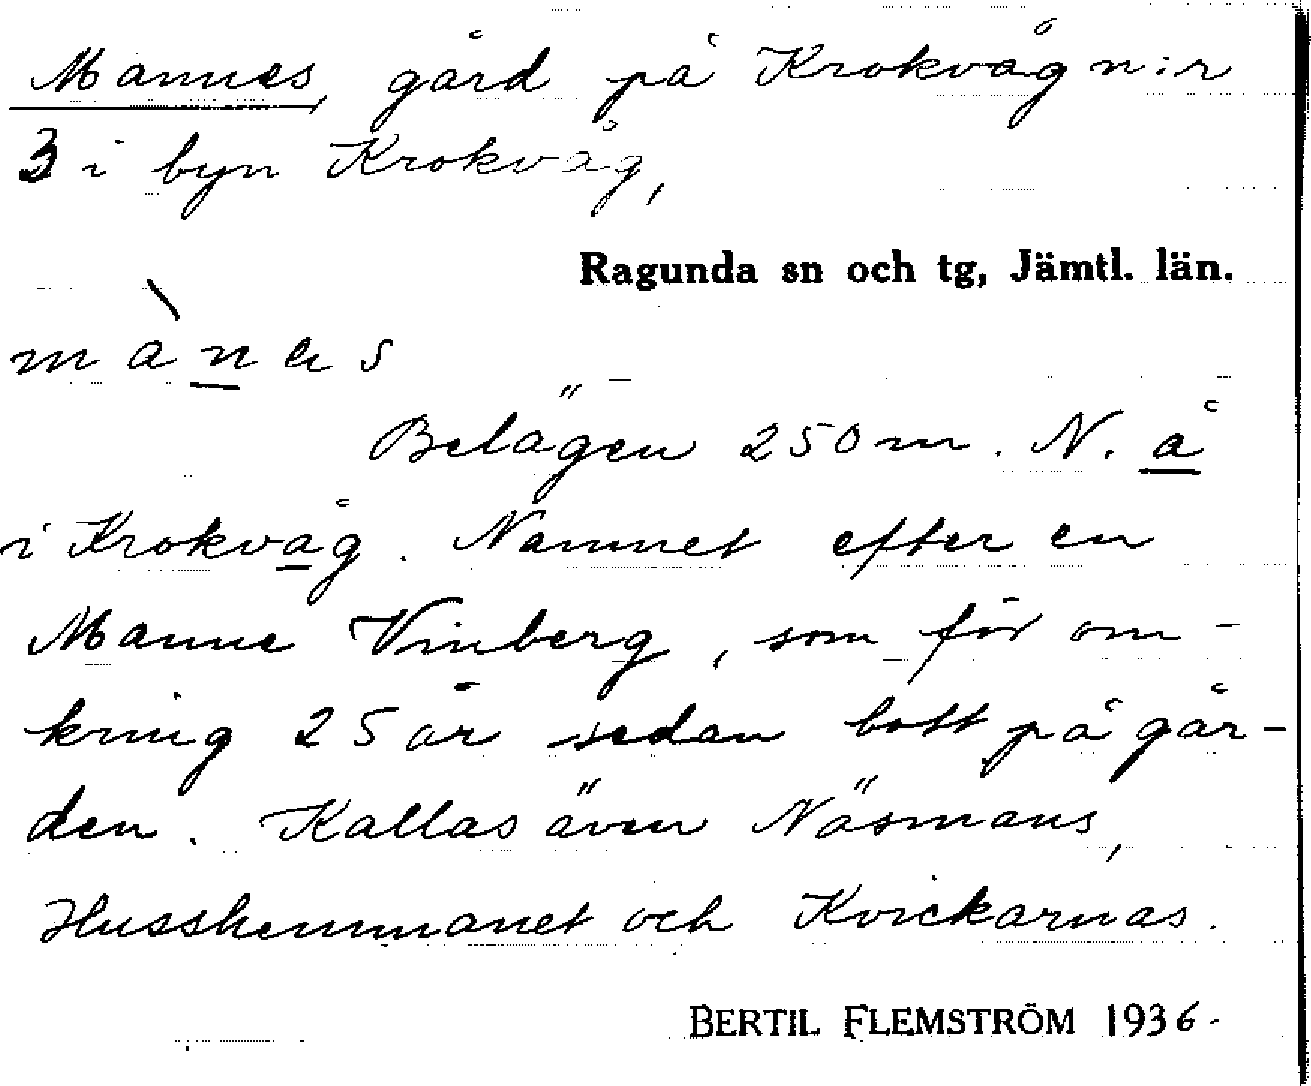 Mannes, gård på Krokvåg n:r
3 i byn Krokvåg,
Ragunda sn och tg, Jämtl. län.
mànas
Belägen 250 m. N. å
i Krokvåg. Namnet efter en
Manne Vinberg, som för om-
kring 25 år sedan bott på går-
den. Kallas även Näsmans,
Husshemmanet och Kvickarnas.
BERTIL FLEMSTRÖM 1936.